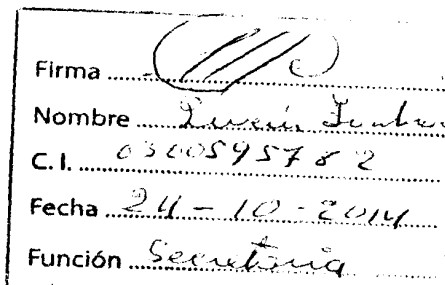 Firma
Nombre
C. I. 0300595782
Fecha 24-10-2014
Función Secretaria